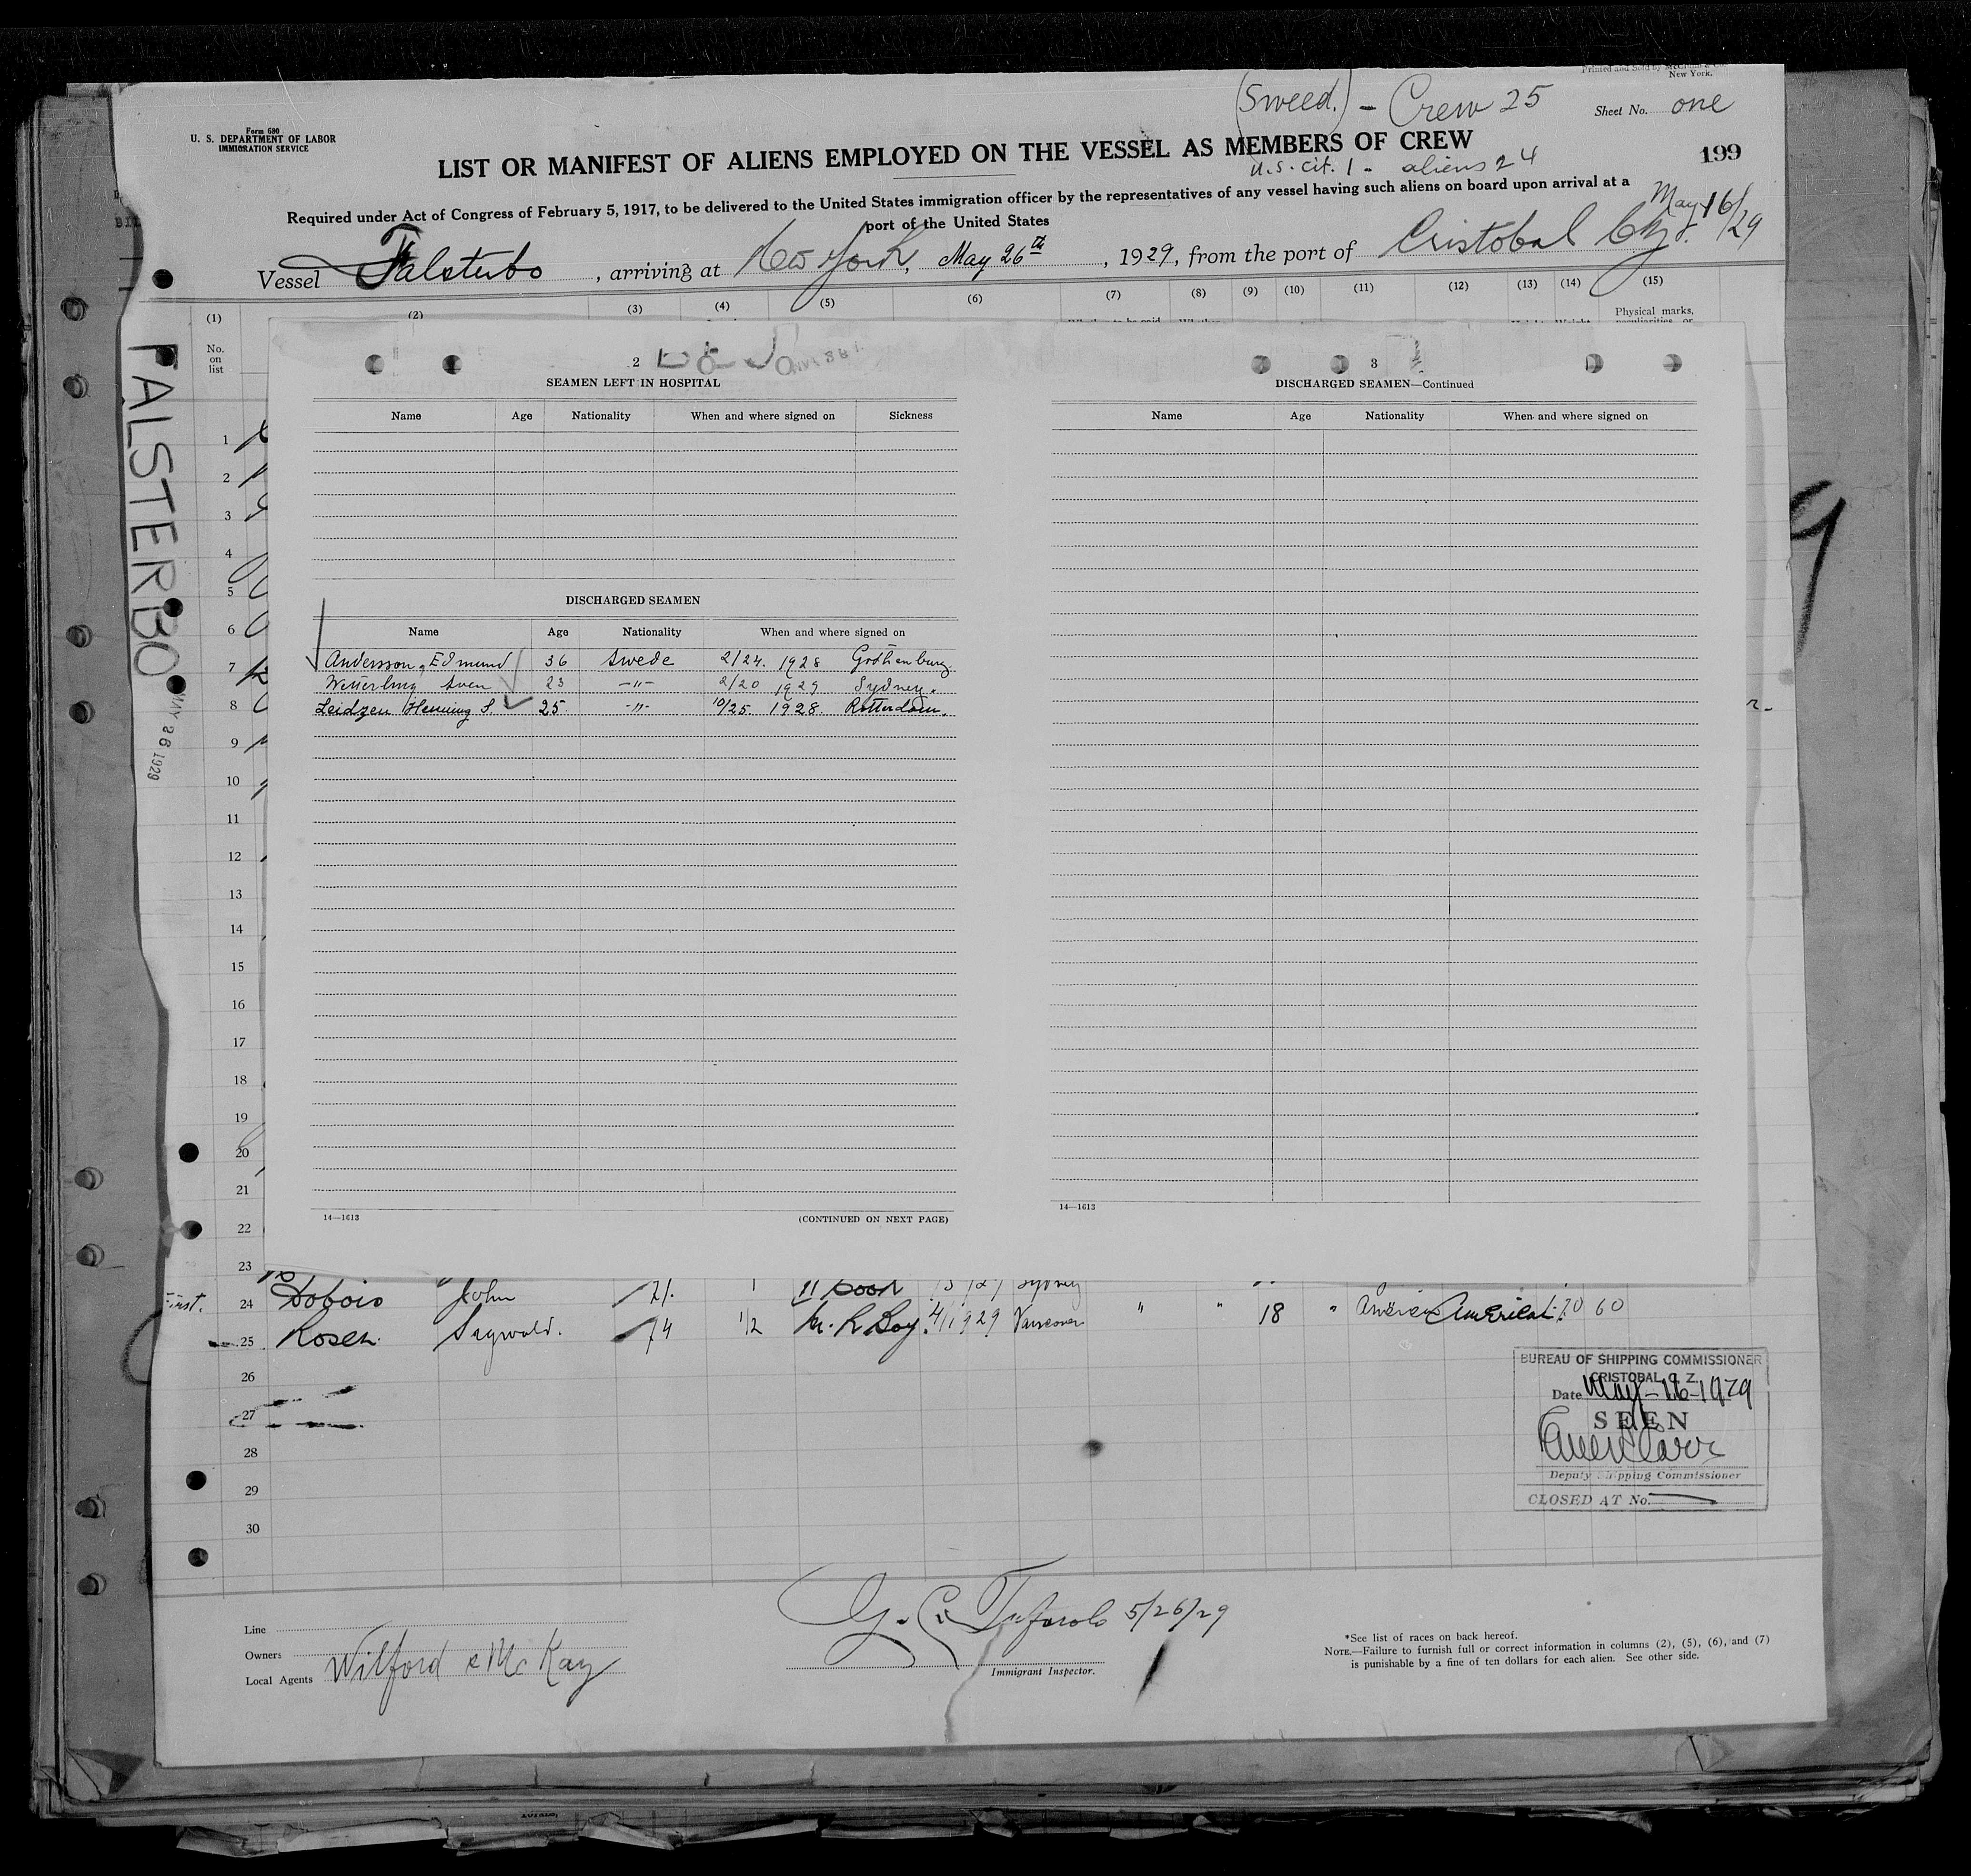 Printed and Sold by
New York.
(Sweed.) - Crew 25
Sheet No. one
Form 680
U. S. DEPARTMENT OF LABOR
IMMIGRATION SERVICE
LIST OR MANIFEST OF ALIENS EMPLOYED ON THE VESSEL AS MEMBERS OF CREW
199
U.S. cit. 1 - aliens 24
Required under Act of Congress of February 5, 1917, to be delivered to the United States immigration officer by the representatives of any vessel having such aliens on board upon arrival at a
port of the United States
May 16/29
Vessel Falsterbo, arriving at New York, May 26th, 1929, from the port of Cristobal
(1) (2) (3) (4) (5) (6) (7) (8) (9) (10) (11) (12) (13) (14) (15)
No. on list
Physical marks,
FALSTERBO
MAY 26 1929
2
SEAMEN LEFT IN HOSPITAL
Name Age Nationality When and where signed on Sickness
DISCHARGED SEAMEN
Name Age Nationality When and where signed on
Andersson, Edmund 36 Swede 2/24. 1928 Gothenburg
Sven 23 -"- 2/20 1929 Sydney.
Leidzen Henning S. 25. -"- 10/25. 1928. Rotterdam.
14—1613
(CONTINUED ON NEXT PAGE)
3
DISCHARGED SEAMEN—Continued
Name Age Nationality When and where signed on
14—1613
1
2
3
4
5
6
7
8
9
10
11
12
13
14
15
16
17
18
19
20
21
22
23
24 Dobois John
25 Rosen 1/2 4/1 1929 " " 18 " American
26
27
28
29
30
BUREAU OF SHIPPING COMMISSIONER
CRISTOBAL, C. Z.
Date May-16-1929
SEEN
Deputy Shipping Commissioner
CLOSED AT No.
5/26/29
Immigrant Inspector.
Line
Owners
Local Agents Wilford & McKay
*See list of races on back hereof.
NOTE.—Failure to furnish full or correct information in columns (2), (5), (6), and (7)
is punishable by a fine of ten dollars for each alien. See other side.